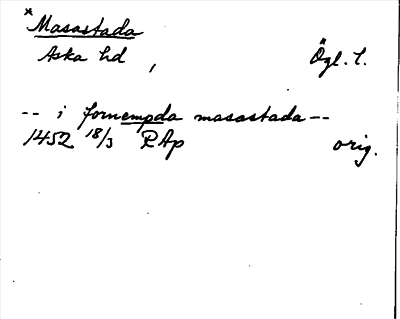 * Masastada
Aska hd , Ögl. l.
-- i fornempda masastada --
1452 18/3 RAp orig.